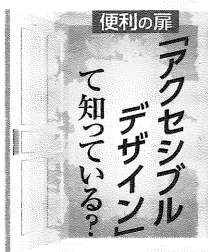 便利の扉
「アクセシブル
デザイン」
て知っている?